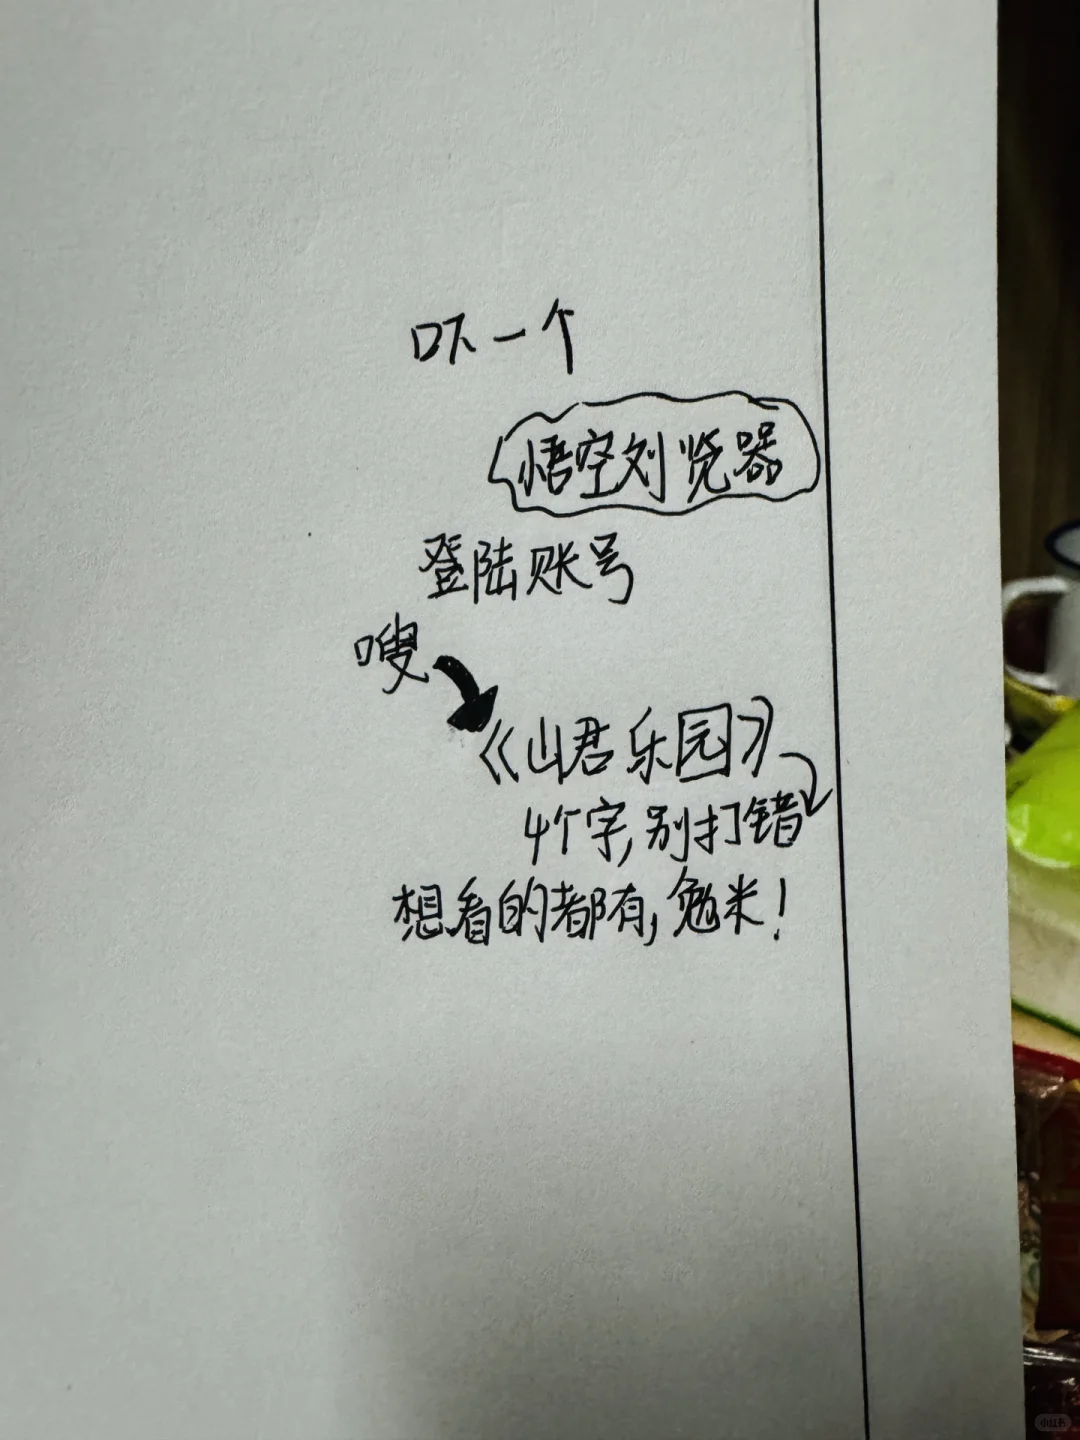 吓一个
悟空刘览器
登陆账号
嗖
《山君乐园》
4个字,别打错
想看的都有,勉米!
小红书